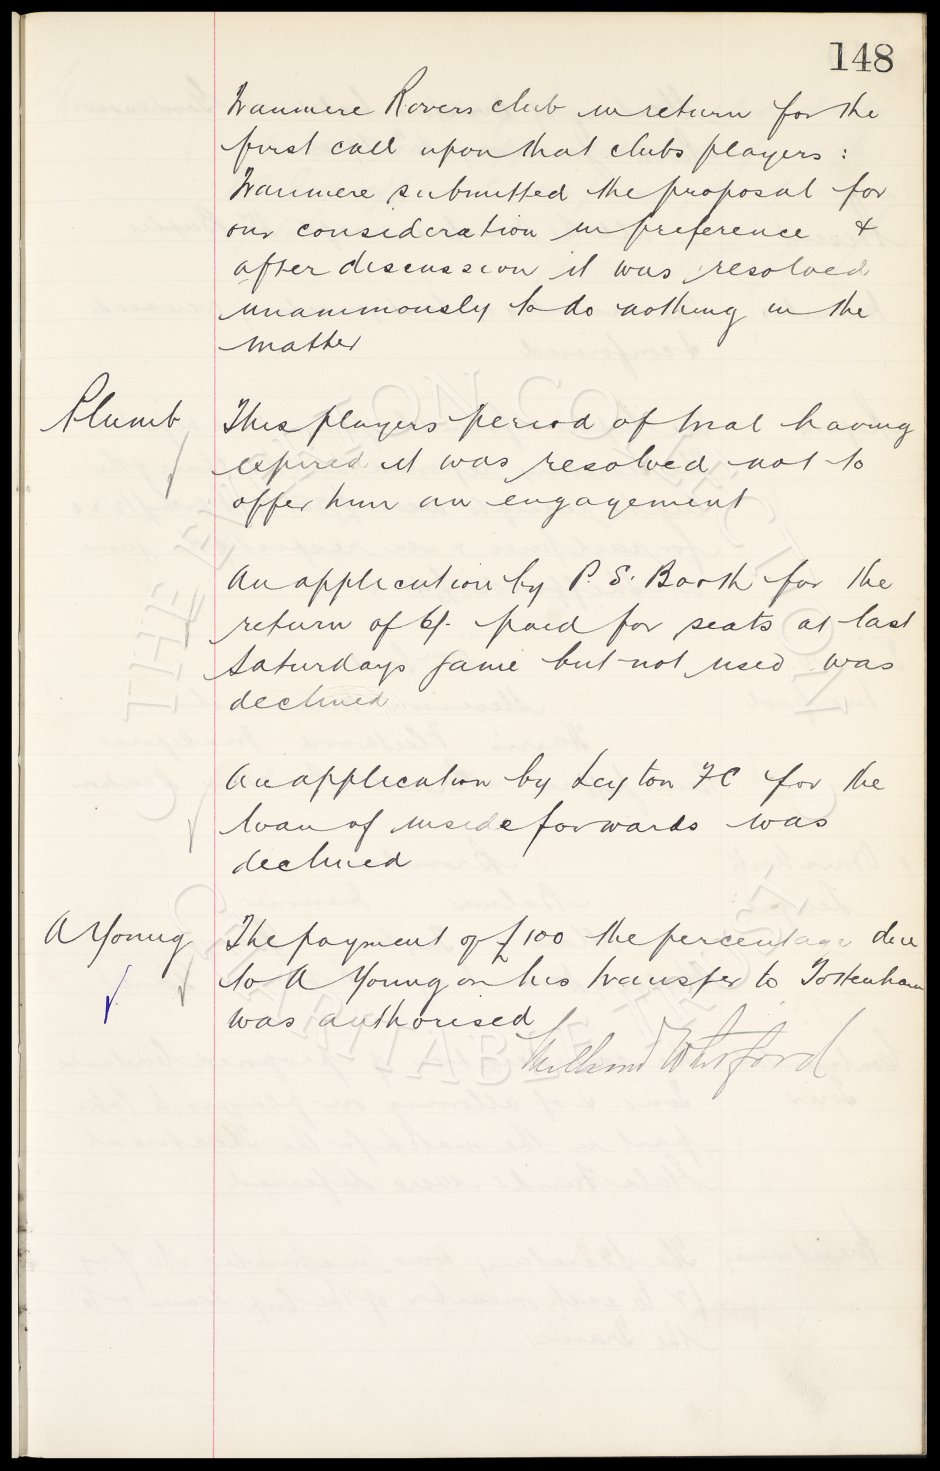 148
Tranmere Rovers club in return for the
first call upon that clubs players :
Tranmere submitted the proposal for
our consideration in preference &
after discussion it was resolved
unanimously to do nothing in the
matter
Plumb
This players period of trial having
expired it was resolved not to
offer him an engagement
An application by P. S. Booth for the
return of 6/- paid for seats at last
Saturdays game but not used was
declined
An application by Leyton FC for the
loan of inside forwards was
declined
A Young
The payment of £100 the percentage due
to A Young on his transfer to Tottenham
was authorised
Whitford
THE EVERTON COLLECTION
CHARITABLE TRUST